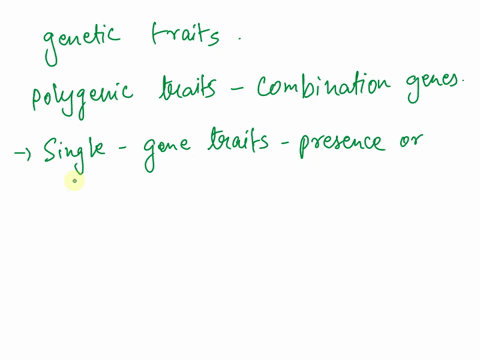 genetic traits.
polygenic traits - combination genes.
→ Single - gene traits - presence or